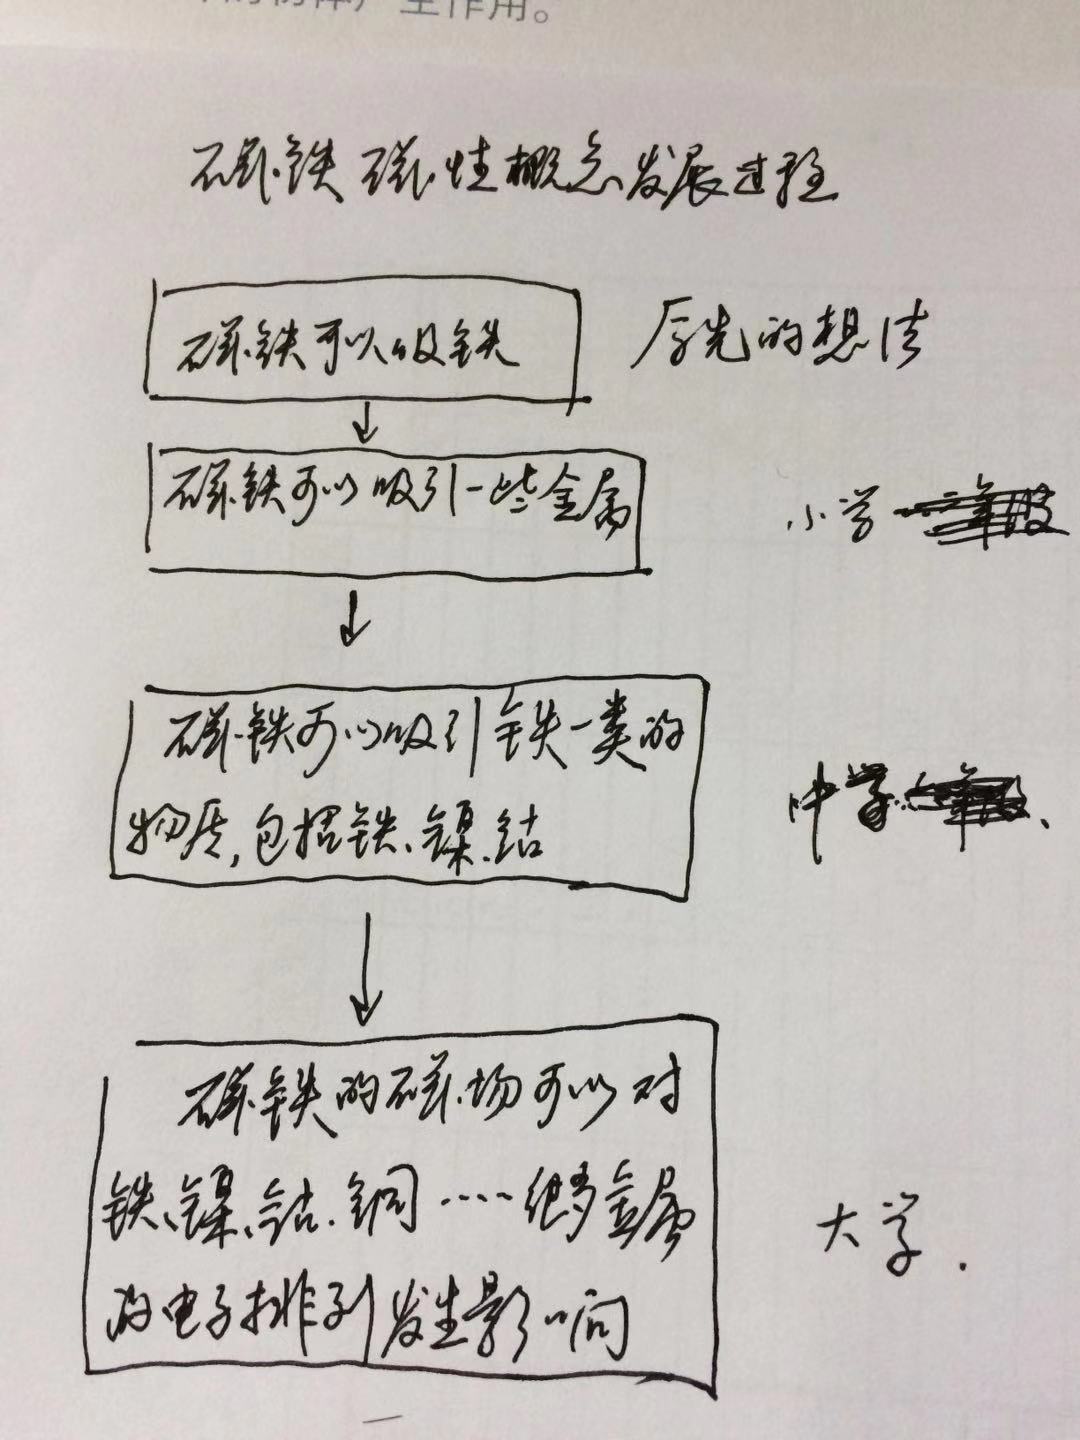 产生作用。
磁铁磁性概念发展过程
磁铁可以吸铁
原先的想法
磁铁可以吸引一些金属
小学
磁铁可以吸引铁一类的
物质,包括铁、镍、钴
中学
磁铁的磁场可以对
铁、镍、钴、铜……很多金属
的电子排列发生影响
大学.